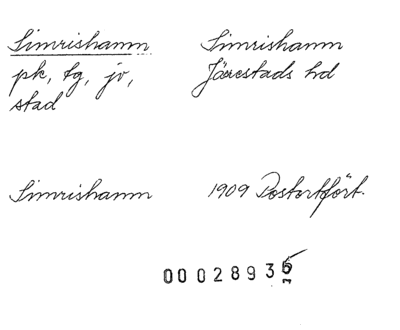 Simrishamn
pk, tg, jv,
stad
Simrishamn
Järrestads hd
Simrishamn
1909 Postortfört.
0002893